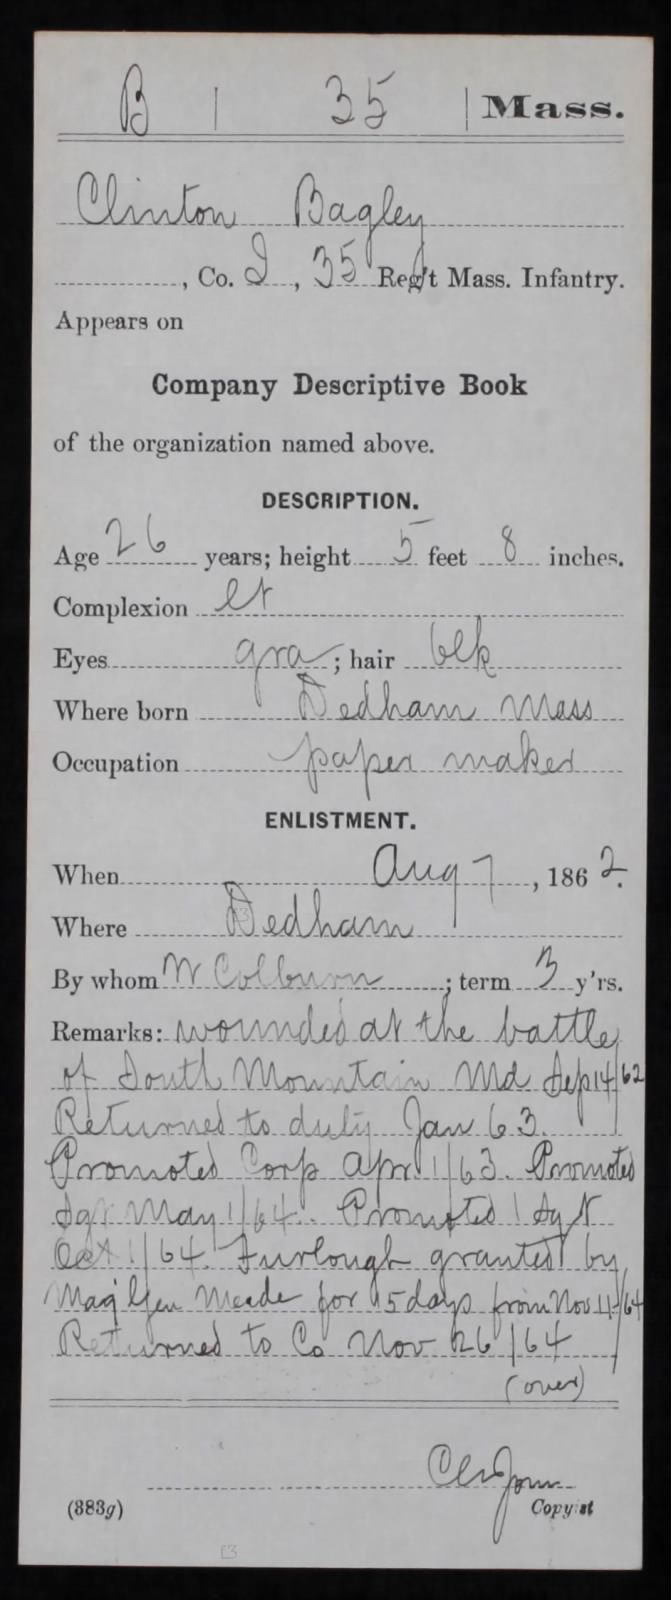 B | 35 | Mass.
Clinton Bagley
, Co. I, 35 Reg't Mass. Infantry.
Appears on
Company Descriptive Book
of the organization named above.
DESCRIPTION.
Age 26 years; height 5 feet 8 inches.
Complexion lt
Eyes gra; hair blk
Where born Dedham Mass
Occupation paper maker
ENLISTMENT.
When Aug 7, 1862.
Where Dedham
By whom W Colburn; term 3 y'rs.
Remarks: wounded at the battle
of South Mountain Md Sep 14/62
Returned to duty Jan 63.
Promoted Corp Apr 1/63. Promoted
Sgt May 1/64. Promoted 1 Sgt
Oct 1/64. Furlough granted by
Maj Gen Meade for 15 days from Nov 11/64
Returned to Co Nov 26/64
(over)
(383g) Copyist